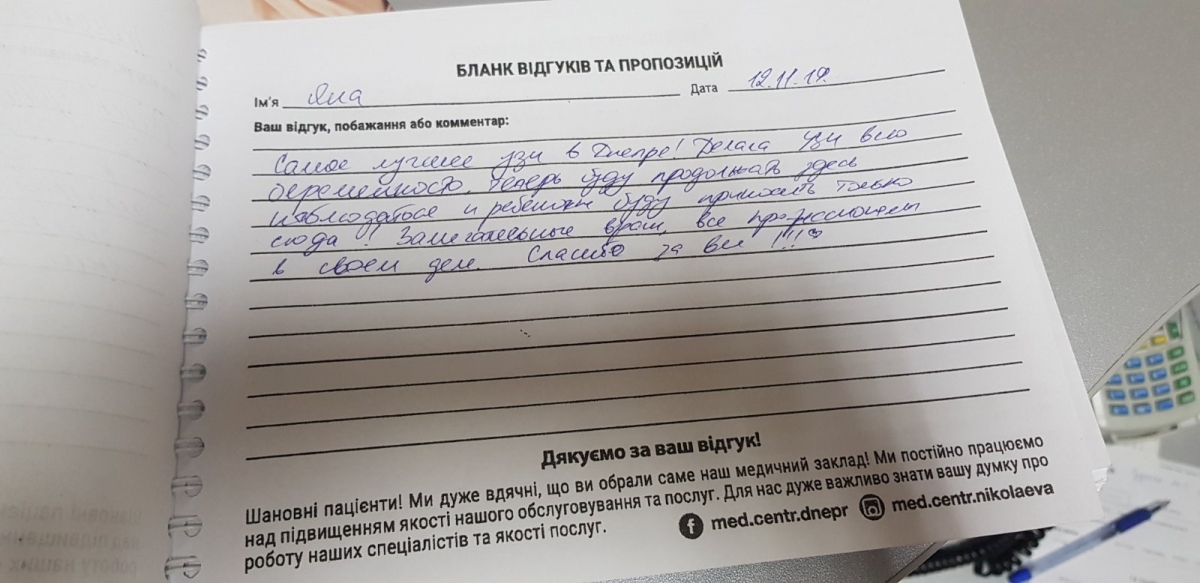 БЛАНК ВІДГУКІВ ТА ПРОПОЗИЦІЙ
Ім'я Яна Дата 12.11.19
Ваш відгук, побажання або комментар:
Самое лучшее узи в Днепре! Делала узи всю
беременность. Теперь буду продолжать здесь
наблюдаться и ребенком буду приезжать только
сюда! Замечательные врачи, все профессионалы
в своем деле. Спасибо за все !!!
Дякуємо за ваш відгук!
Шановні пацієнти! Ми дуже вдячні, що ви обрали саме наш медичний заклад! Ми постійно працюємо
над підвищенням якості нашого обслуговування та послуг. Для нас дуже важливо знати вашу думку про
роботу наших спеціалістів та якості послуг.
med.centr.dnepr med.centr.nikolaeva